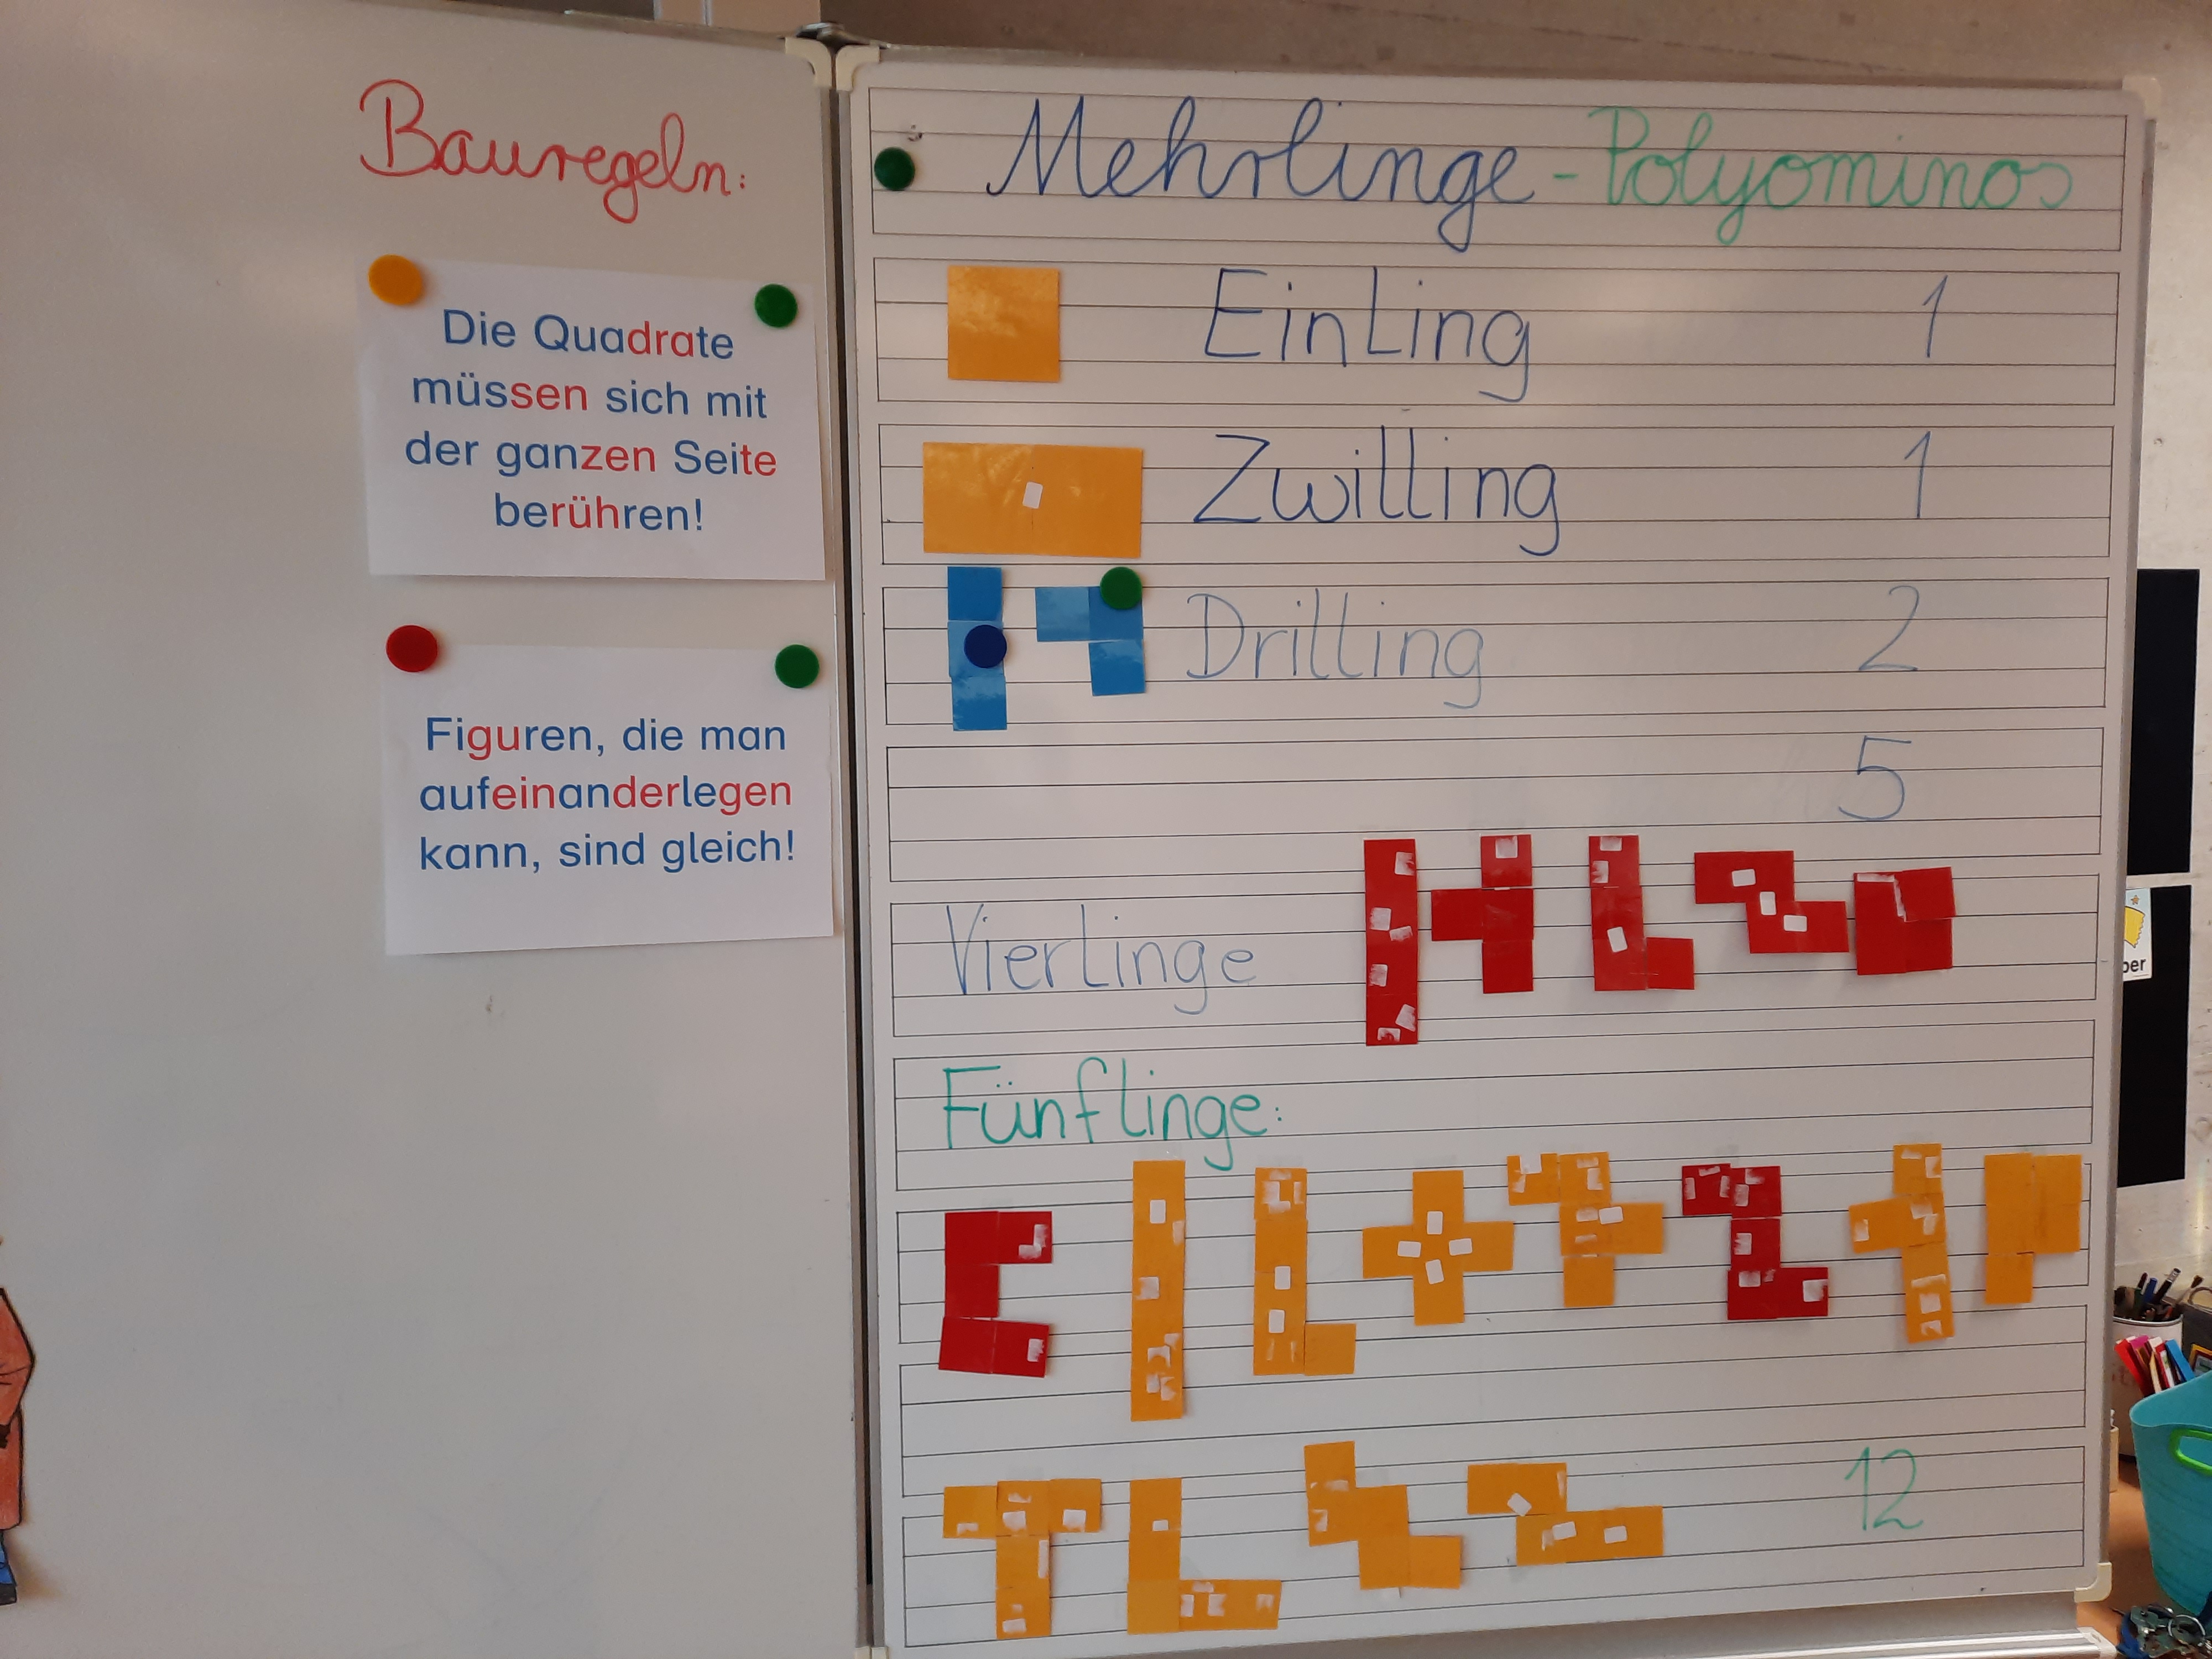 Bauregeln:
Die Quadrate
müssen sich mit
der ganzen Seite
berühren!
Figuren, die man
aufeinanderlegen
kann, sind gleich!
Mehrlinge - Polyominos
Einling 1
Zwilling 1
Drilling 2
5
Vierlinge
Fünflinge:
12
ber